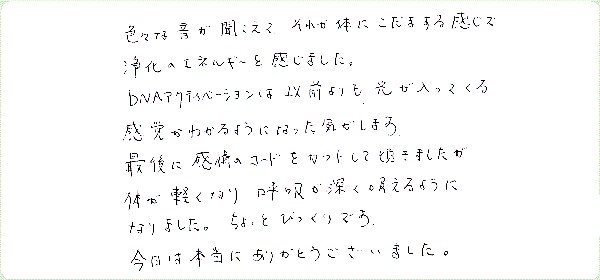 色々な音が聞こえて それが体にこだまする感じで
浄化のエネルギーを感じました。
DNAアクティベーションは 以前よりも 光が入ってくる
感覚がわかるようになった気がします
最後に 感情のコードをカットして頂きましたが
体が 軽くなり 呼吸が深く吸えるように
なりました。 ちょっとびっくりです
今日は本当にありがとうございました。